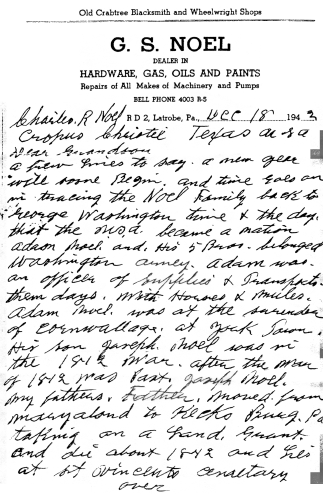 Old Crabtree Blacksmith and Wheelwright Shops
G. S. NOEL
DEALER IN
HARDWARE, GAS, OILS AND PAINTS
Repairs of All Makes of Machinery and Pumps
BELL PHONE 4003 R-5
Charles. R Noel R D 2, Latrobe, Pa., Dec 18 1942
Cropus Christie Texas
Dear Grandson
a few lines to say. a new year
will soone Begin. and time goes on
in tracing the Noel Family back to
George Washington time & the day.
that the U.S.a. became a nation
Adam Noel. and. His 5 Bros. belonged
Washington armey. Adam was.
an officer of Supplies & Transports.
them days. with Horses & mules.
Adam Noel. was at the surender
of Cornwallage. at York Town.
His son Joseph. Noel was in
the 1812 War. after the war
of 1812 was Past. Joseph Noel.
my fathers. Father. moved from
maryaland to Hecks Burg. Pa
taking on a Land. Grant.
and die about 1842 and lies
at St Vincents cemetary
over